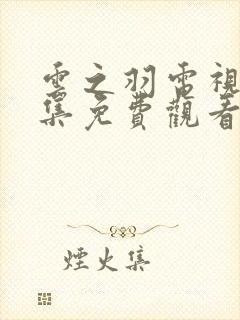 雲之羽電視
集免費觀看
煙火集